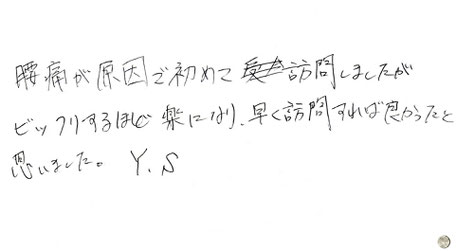 腰痛が原因で初めて訪問しましたが
ビックリするほど楽になり、早く訪問すれば良かったと
思いました。 Y.S